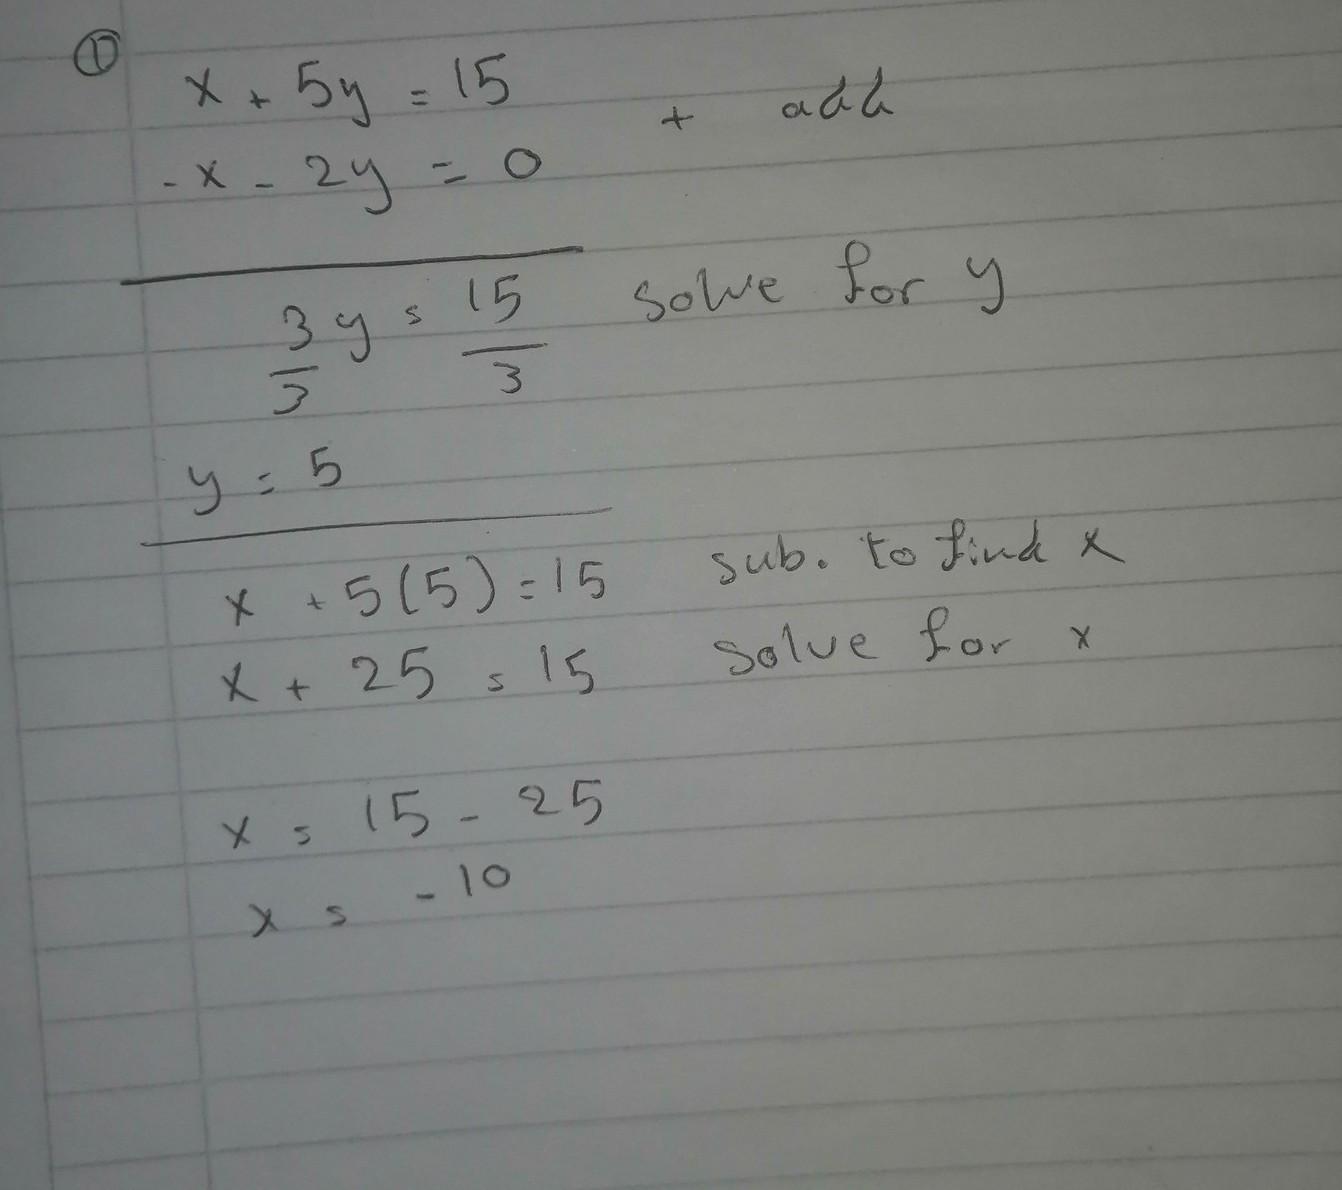 ①
x + 5y = 15
+ add
-x - 2y = 0
3/3 y = 15/3 solve for y
y = 5
x + 5(5) = 15 sub. to find x
x + 25 = 15 solve for x
x = 15 - 25
x = -10